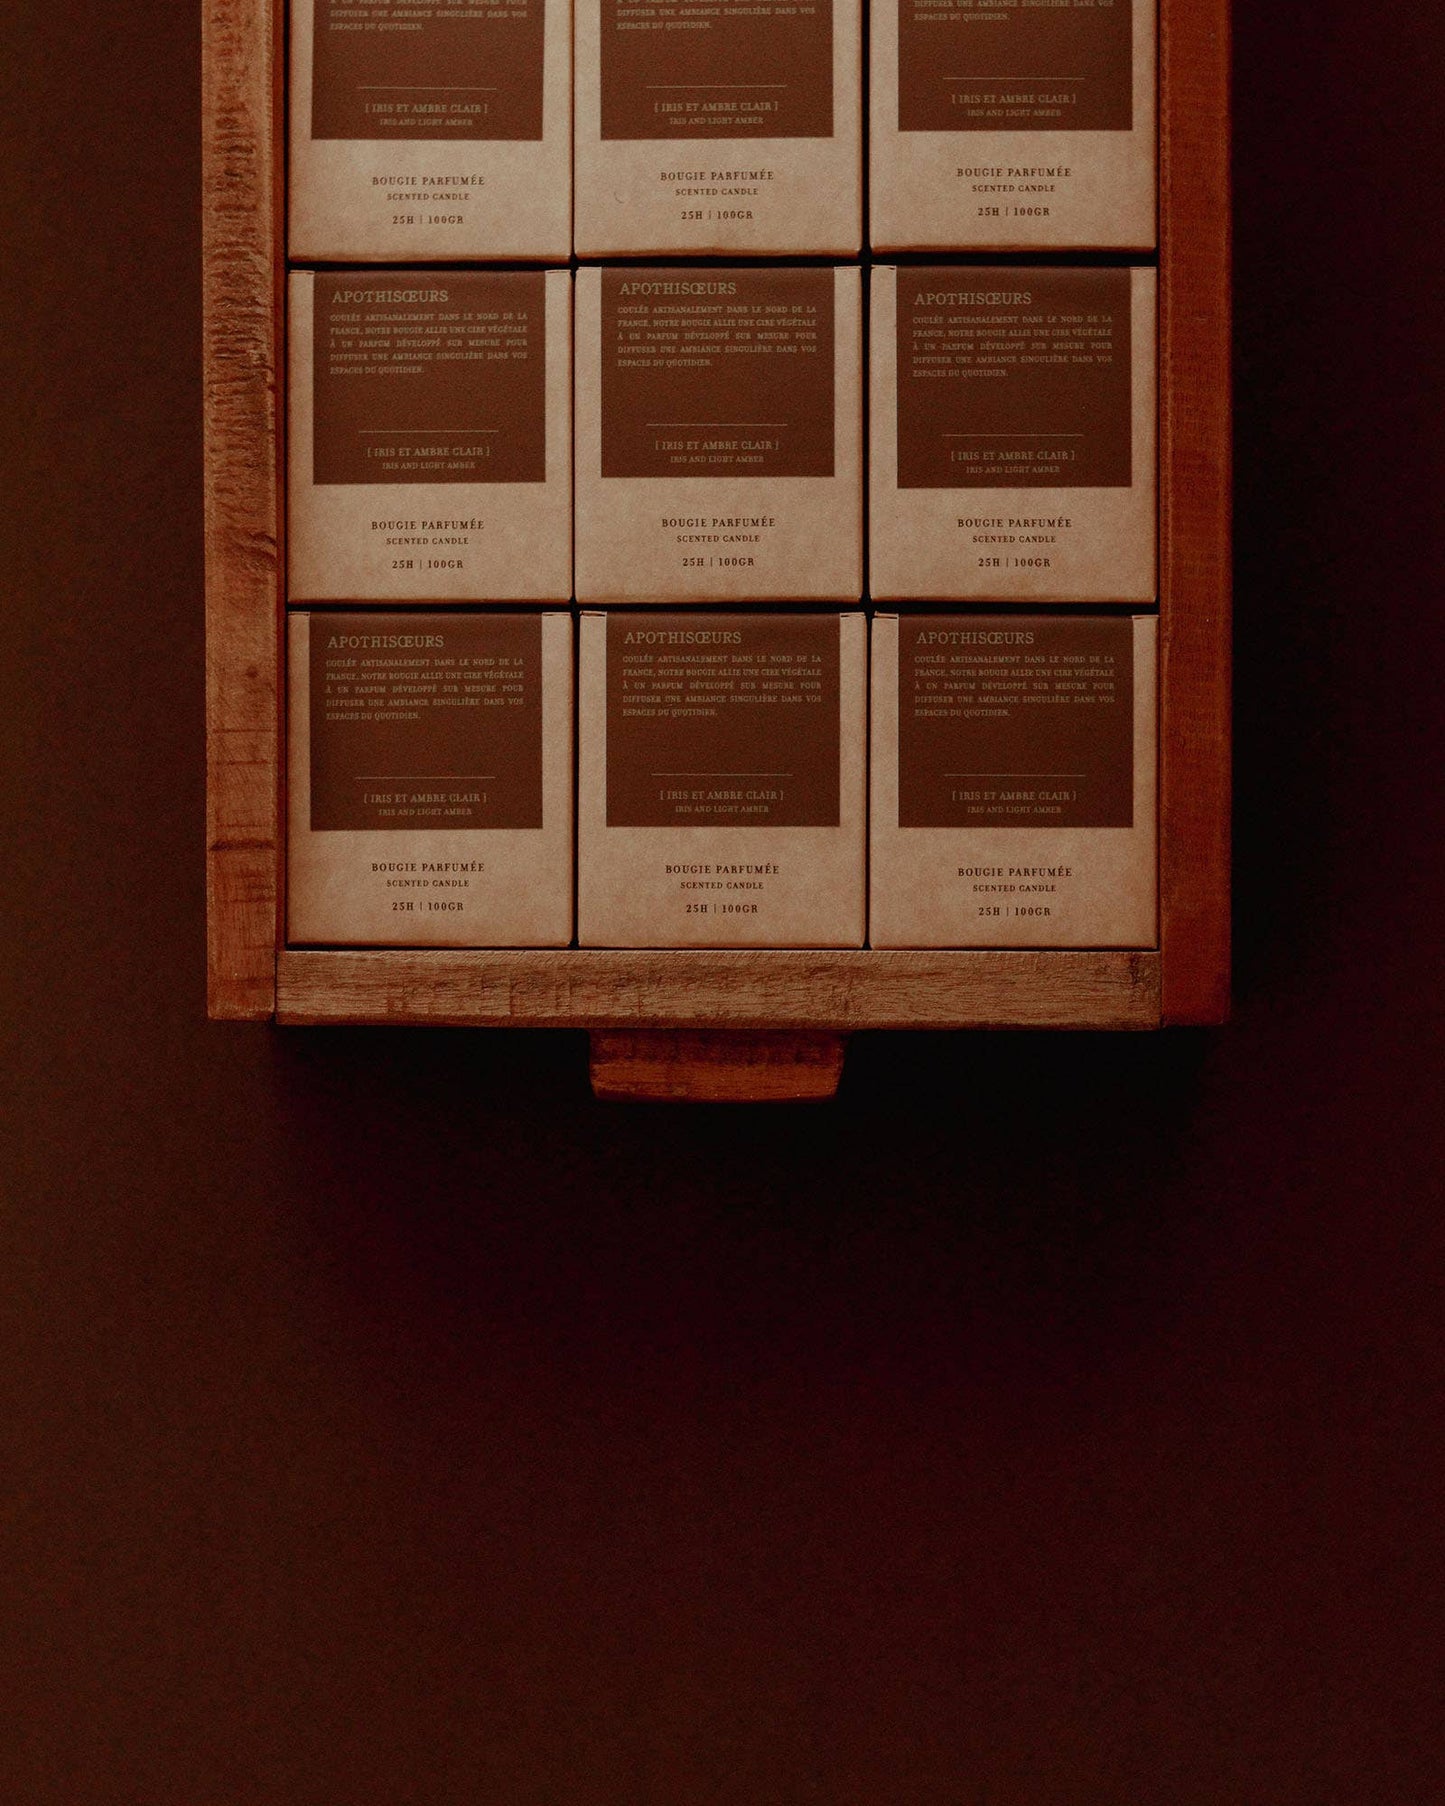 À UN PARFUM DÉVELOPPÉ SUR MESURE POUR
DIFFUSER UNE AMBIANCE SINGULIÈRE DANS VOS
ESPACES DU QUOTIDIEN.
[ IRIS ET AMBRE CLAIR ]
IRIS AND LIGHT AMBER
BOUGIE PARFUMÉE
SCENTED CANDLE
25H | 100GR
DIFFUSER UNE AMBIANCE SINGULIÈRE DANS VOS
ESPACES DU QUOTIDIEN.
[ IRIS ET AMBRE CLAIR ]
IRIS AND LIGHT AMBER
BOUGIE PARFUMÉE
SCENTED CANDLE
25H | 100GR
DIFFUSER UNE AMBIANCE SINGULIÈRE DANS VOS
ESPACES DU QUOTIDIEN.
[ IRIS ET AMBRE CLAIR ]
IRIS AND LIGHT AMBER
BOUGIE PARFUMÉE
SCENTED CANDLE
25H | 100GR
APOTHISŒURS
COULÉE ARTISANALEMENT DANS LE NORD DE LA
FRANCE, NOTRE BOUGIE ALLIE UNE CIRE VÉGÉTALE
À UN PARFUM DÉVELOPPÉ SUR MESURE POUR
DIFFUSER UNE AMBIANCE SINGULIÈRE DANS VOS
ESPACES DU QUOTIDIEN.
[ IRIS ET AMBRE CLAIR ]
IRIS AND LIGHT AMBER
BOUGIE PARFUMÉE
SCENTED CANDLE
25H | 100GR
APOTHISŒURS
COULÉE ARTISANALEMENT DANS LE NORD DE LA
FRANCE, NOTRE BOUGIE ALLIE UNE CIRE VÉGÉTALE
À UN PARFUM DÉVELOPPÉ SUR MESURE POUR
DIFFUSER UNE AMBIANCE SINGULIÈRE DANS VOS
ESPACES DU QUOTIDIEN.
[ IRIS ET AMBRE CLAIR ]
IRIS AND LIGHT AMBER
BOUGIE PARFUMÉE
SCENTED CANDLE
25H | 100GR
APOTHISŒURS
COULÉE ARTISANALEMENT DANS LE NORD DE LA
FRANCE, NOTRE BOUGIE ALLIE UNE CIRE VÉGÉTALE
À UN PARFUM DÉVELOPPÉ SUR MESURE POUR
DIFFUSER UNE AMBIANCE SINGULIÈRE DANS VOS
ESPACES DU QUOTIDIEN.
[ IRIS ET AMBRE CLAIR ]
IRIS AND LIGHT AMBER
BOUGIE PARFUMÉE
SCENTED CANDLE
25H | 100GR
APOTHISŒURS
COULÉE ARTISANALEMENT DANS LE NORD DE LA
FRANCE, NOTRE BOUGIE ALLIE UNE CIRE VÉGÉTALE
À UN PARFUM DÉVELOPPÉ SUR MESURE POUR
DIFFUSER UNE AMBIANCE SINGULIÈRE DANS VOS
ESPACES DU QUOTIDIEN.
[ IRIS ET AMBRE CLAIR ]
IRIS AND LIGHT AMBER
BOUGIE PARFUMÉE
SCENTED CANDLE
25H | 100GR
APOTHISŒURS
COULÉE ARTISANALEMENT DANS LE NORD DE LA
FRANCE, NOTRE BOUGIE ALLIE UNE CIRE VÉGÉTALE
À UN PARFUM DÉVELOPPÉ SUR MESURE POUR
DIFFUSER UNE AMBIANCE SINGULIÈRE DANS VOS
ESPACES DU QUOTIDIEN.
[ IRIS ET AMBRE CLAIR ]
IRIS AND LIGHT AMBER
BOUGIE PARFUMÉE
SCENTED CANDLE
25H | 100GR
APOTHISŒURS
COULÉE ARTISANALEMENT DANS LE NORD DE LA
FRANCE, NOTRE BOUGIE ALLIE UNE CIRE VÉGÉTALE
À UN PARFUM DÉVELOPPÉ SUR MESURE POUR
DIFFUSER UNE AMBIANCE SINGULIÈRE DANS VOS
ESPACES DU QUOTIDIEN.
[ IRIS ET AMBRE CLAIR ]
IRIS AND LIGHT AMBER
BOUGIE PARFUMÉE
SCENTED CANDLE
25H | 100GR